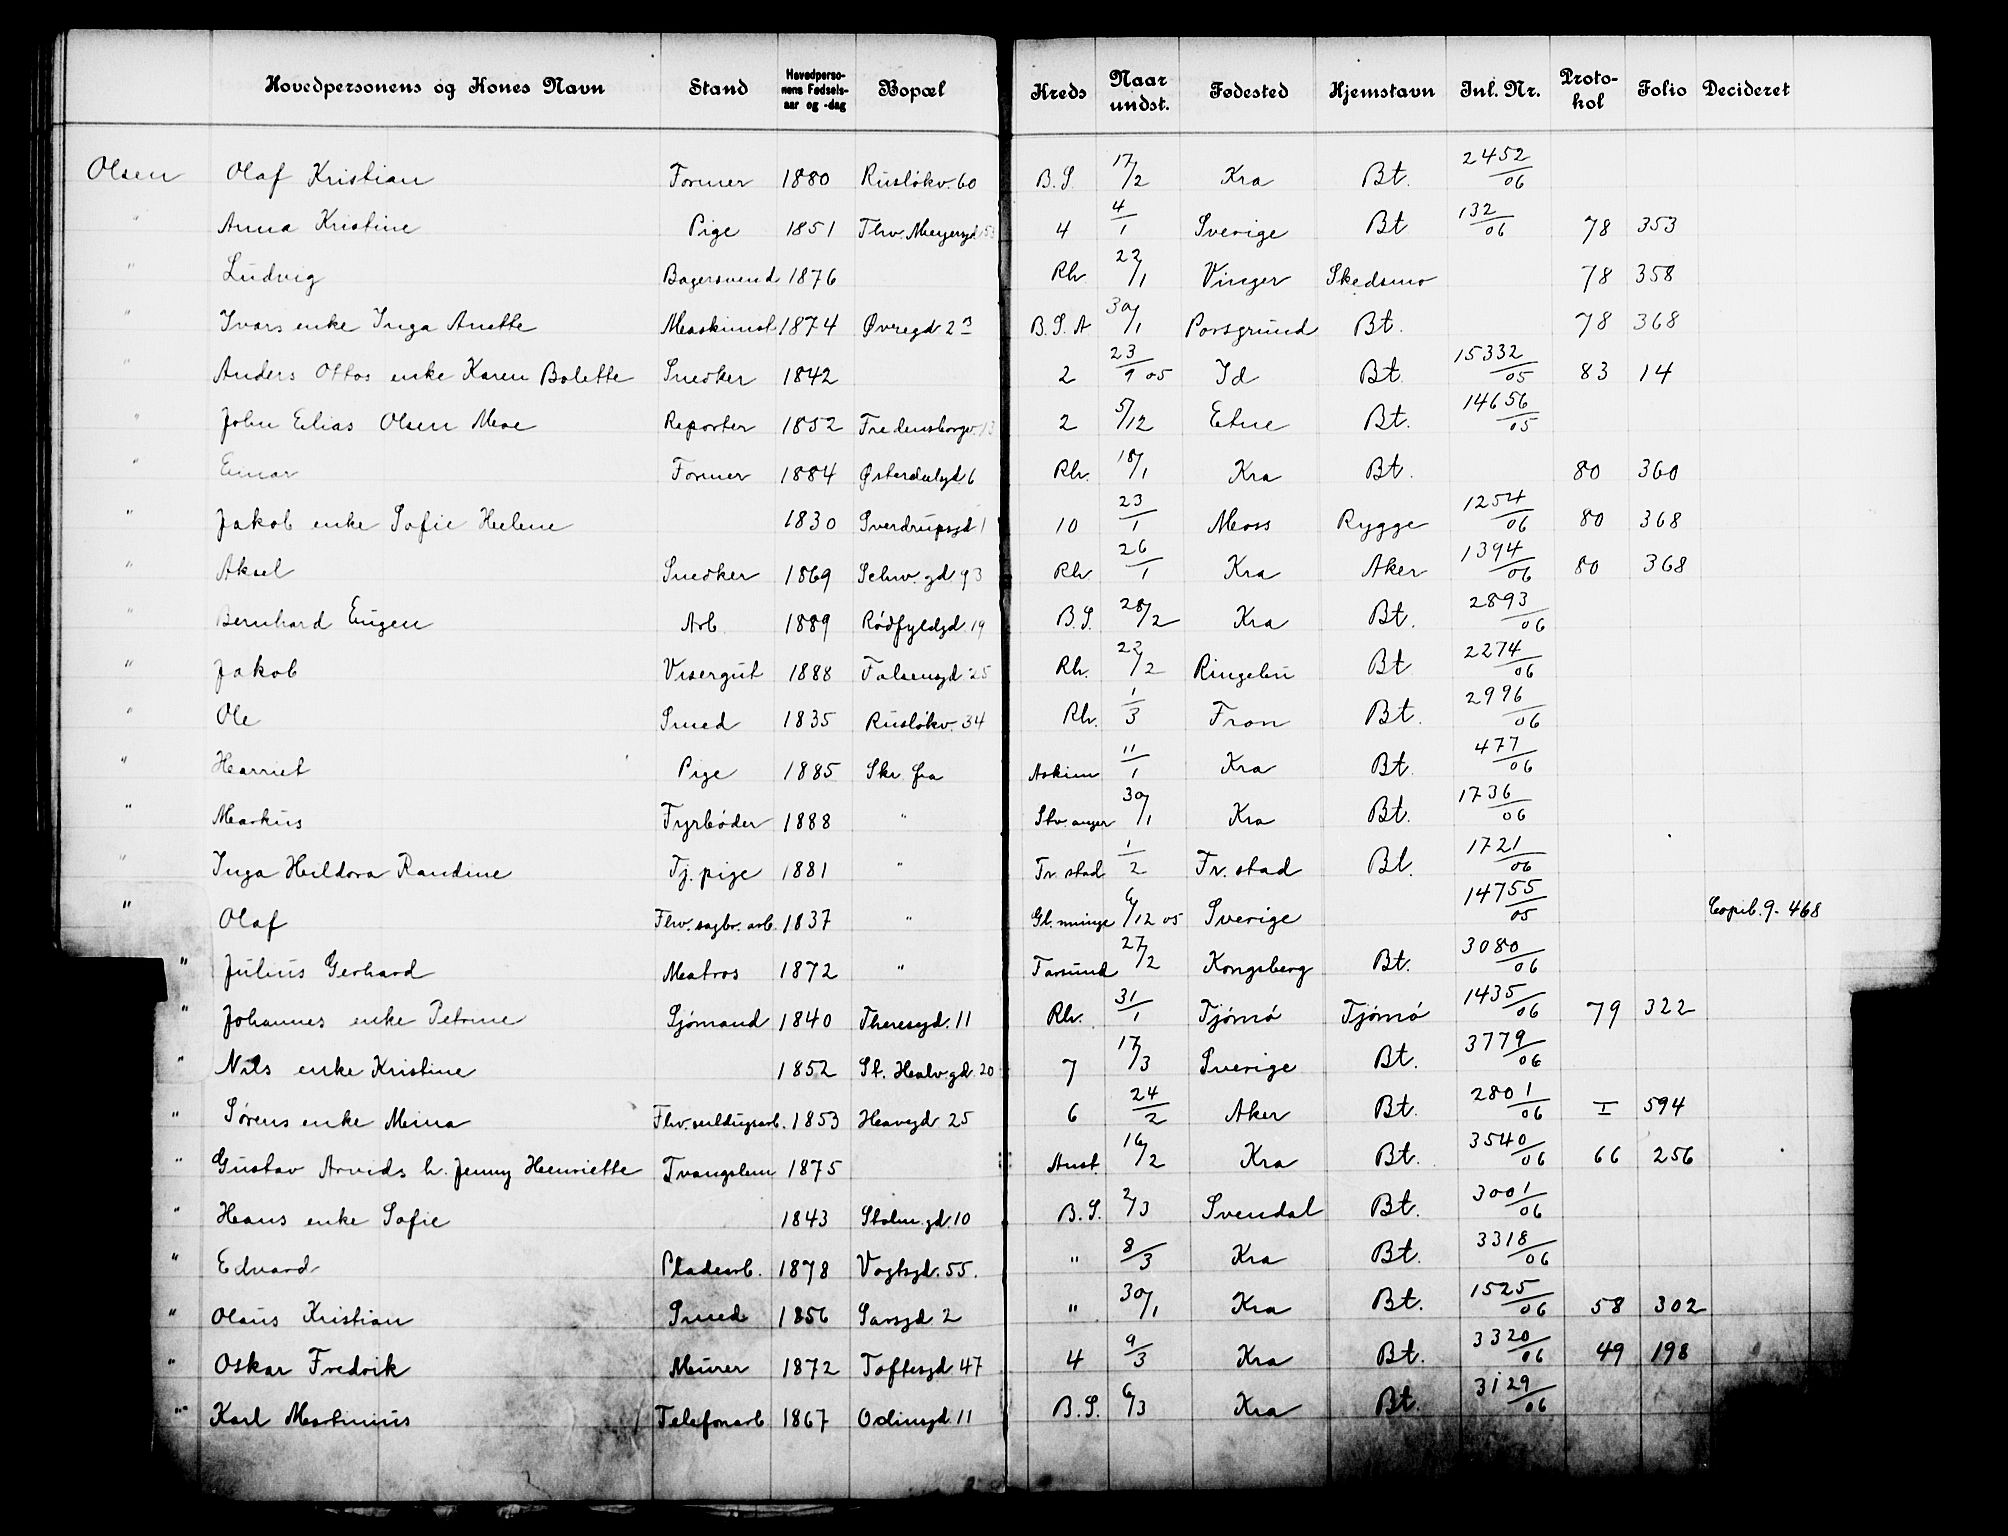 Hovedpersonens og Kones Navn Stand Hovedpersonens Fødselsaar og -dag Bopæl Kreds Naar undst. Fødested Hjemstavn Inl. Nr. Protokol Folio Decideret
Olsen Olaf Kristian Former 1880 Rusløkv. 60 B.S. 17/2 Kra Bt. 2452/06
" Anna Kristine Pige 1851 Thv. Meyersgd 4 4/1 Sverige Bt 132/06 78 353
" Ludvig Bagersvend 1876 Rh. 22/1 Vinger Skedsmo 78 358
" Ivars enke Inga Anette Maskinist 1874 Øvregd 2 B.S.A 30/1 Porsgrund Bt. 78 368
" Anders Ottos enke Karen Bolette Snedker 1842 2 23/9 05 Id Bt. 15332/05 83 14
" John Elias Olsen Moe Reporter 1852 Fredensborgv. 13 2 5/12 Etne Bt. 14656/05
" Einar Former 1884 Østerdalsgd. 6 Rh. 18/1 Kra Bt. 80 360
" Jakob enke Sofie Helene 1830 Sverdrupsgd 1 10 23/1 Moss Rygge 1254/06 80 368
" Aksel Snedker 1869 Schw. gd 93 Rh. 26/1 Kra Aker 1394/06 80 368
" Bernhard Eugen Arb. 1889 Rødfyldgd. 19 B.S. 28/2 Kra Bt. 2893/06
" Jakob Visergut 1888 Falsensgd 25 Rh. 22/2 Ringebu Bt 2274/06
" Ole Smed 1835 Rusløkv. 34 Rh. 1/3 Fron Bt. 2996/06
" Harriet Pige 1885 Skr fra Askim 11/1 Kra Bt. 477/06
" Markus Fyrbøder 1888 " Stv. anger 30/1 Kra Bt. 1736/06
" Inga Hildora Randine Tj. pige 1881 " Fr. stad 1/2 Fr. stad Bt. 1721/06
" Olaf Fhv. sagbr. arb. 1837 " Gl. minge 6/12 05 Sverige 14755/05 Copib. 9 - 468
" Julius Gerhard Matros 1872 " Farsund 27/2 Kongsberg Bt. 3080/06
" Johannes enke Petrine Sjømand 1840 Theresgd. 11 Rh. 31/1 Tjømø Tjømø 1435/06 79 322
" Nils enke Kristine 1852 St. Halv. gd. 20 7 17/3 Sverige Bt. 3779/06
" Sørens enke Mina 1853 Havegd. 25 6 24/2 Aker Bt. 2801/06 I 594
" Gustav Arvids h. Jenny Henriette Tvangslem 1875 Anst. 16/2 Kra Bt. 3540/06 66 256
" Hans enke Sofie 1843 Stolm. gd. 10 B.S. 2/3 Svendal Bt. 3001/06
" Edvard Pladearb. 1878 Vogtsgd. 55. " 8/3 Kra Bt. 3318/06
" Olaus Kristian Smed 1856 Sarsgd. 2 " 30/1 Kra Bt. 1525/06 58 302
" Oskar Fredrik Murer 1872 Toftesgd 47 4 9/3 Kra Bt. 3320/06 49 198
" Karl Martinius Telefonarb. 1867 Odinsgd. 11 B.S. 6/3 Kra Bt. 3129/06